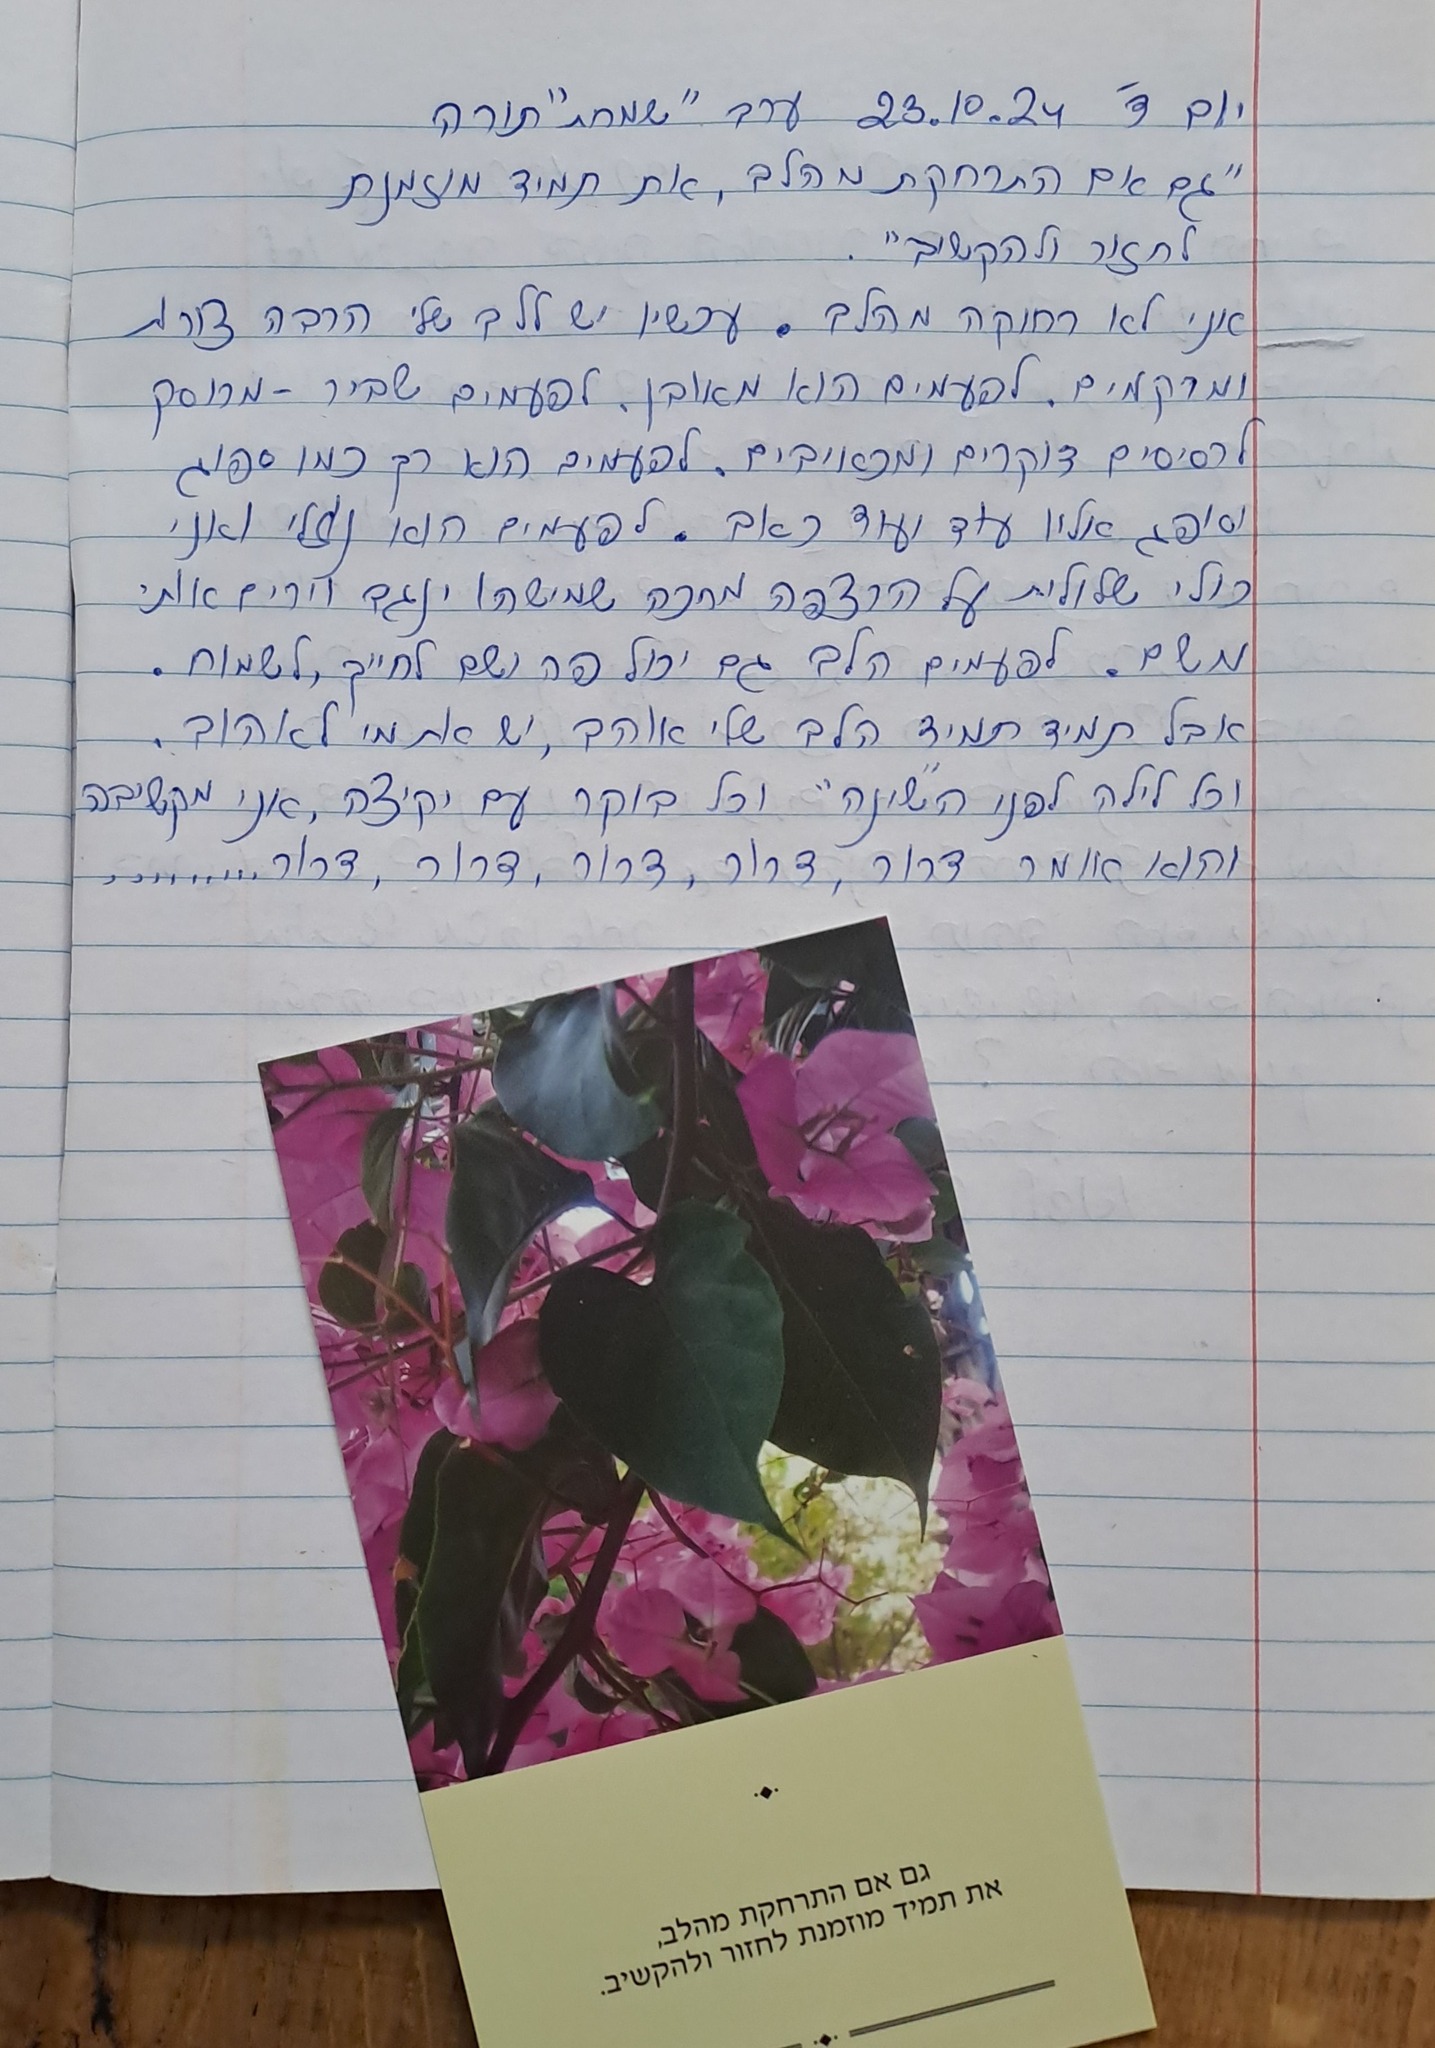 יום ד' 23.10.24 ערב "שמחת" תורה
"גם אם התרחקת מהלב, את תמיד מוזמנת
לחזור ולהקשיב".
אני לא רחוקה מהלב. עכשיו יש ללב שלי הרבה צורות
ומרקמים. לפעמים הוא מאובן. לפעמים שביר - מרוסק
לרסיסים דוקרים ומכאיבים. לפעמים הוא רך כמו ספוג
וסופג אליו עוד ועוד כאב. לפעמים הוא נוזלי ואני
כולי שלולית על הרצפה מחכה שמישהו ינגב וירים אותי
משם. לפעמים הלב גם יכול פה ושם לחייך, לשמוח.
אבל תמיד תמיד הלב שלי אוהב, יש את מי לאהוב.
וכל לילה לפני ה"שינה" וכל בוקר עם יקיצה, אני מקשיבה
והוא אומר דרור, דרור, דרור, דרור, דרור.........
גם אם התרחקת מהלב,
את תמיד מוזמנת לחזור ולהקשיב.